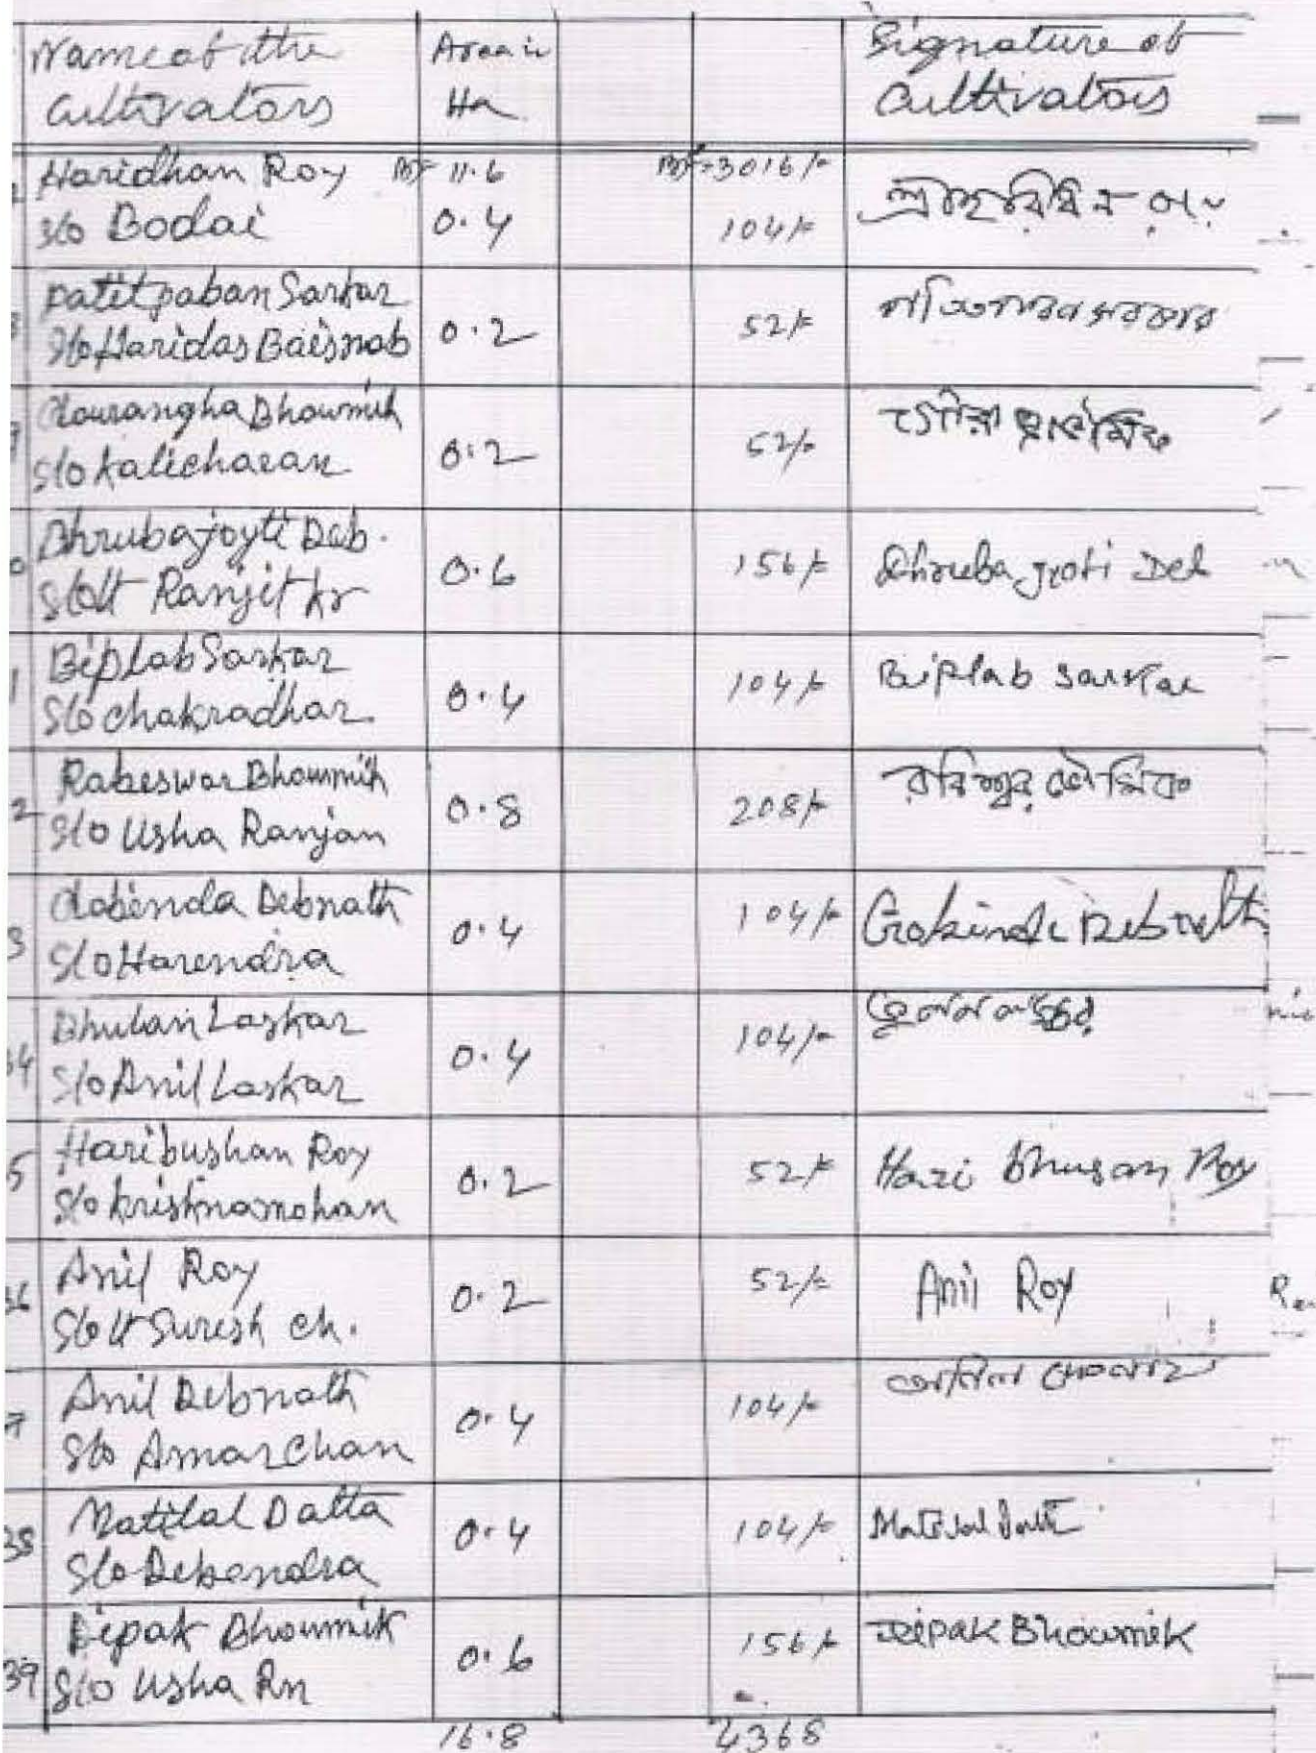 Name of the Area in Signature of
Cultivators Ha Cultivators
Haridhan Roy BF 11.6 BF=3016/-
S/o Bodai 0.4 104/- শ্রী হরিধন রায়
Patitpaban Sarkar
S/o Haridas Baisnab 0.2 52/- পতিতপাবন সরকার
Gourangha Bhowmik
S/o Kalicharan 0.2 52/-
0 Dhrubajoyti Deb.
S/o Lt Ranjit kr 0.6 156/- Dhruba jyoti Deb
1 Biplab Sarkar
S/o Chakradhar. 0.4 104/- Biplab Sarkar
2 Rabeswar Bhowmik
S/o Usha Ranjan 0.8 208/- রবিশ্বর ভৌমিক
3 Gobenda Debnath
S/o Harendra 0.4 104/- Gobinda Debnath
34 Bhulan Laskar
S/o Anil Laskar 0.4 104/- ভুলন লস্কর
5 Haribushan Roy
S/o Krishnamohan 0.2 52/- Hari Bhusan Roy
36 Anil Roy
S/o Lt Suresh Ch. 0.2 52/- Anil Roy
7 Anil Debnath
S/o Amarchan 0.4 104/- অনিল দেবনাথ
38 Matilal Datta
S/o Debendra 0.4 104/- Matilal Datta
39 Dipak Bhowmik
S/o Usha Rn 0.6 156/- Dipak Bhowmik
16.8 4368